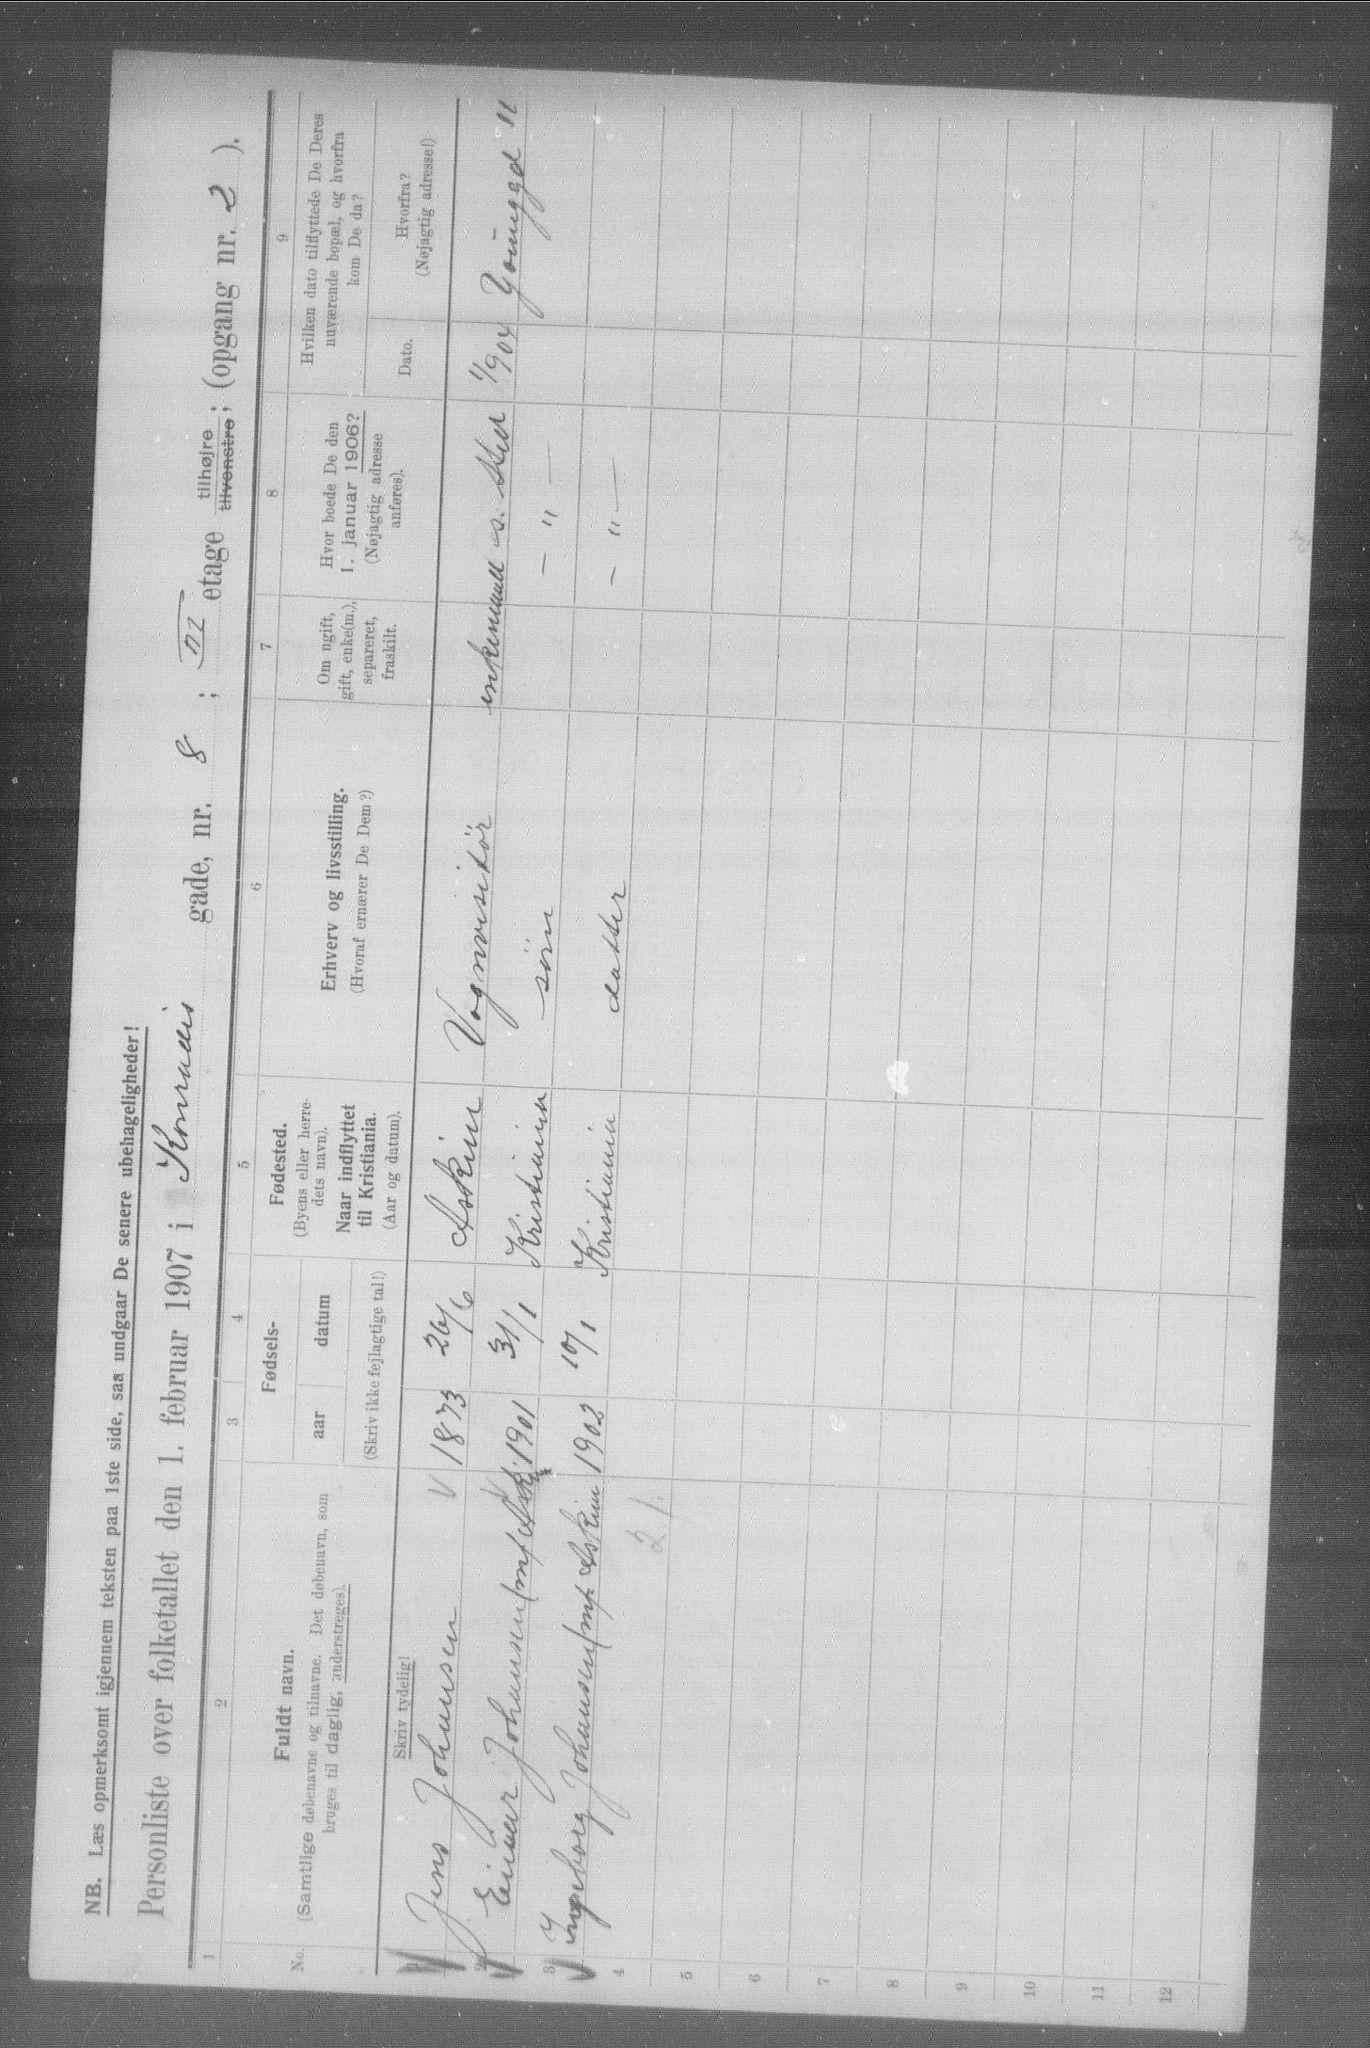 NB. Læs opmerksomt igjennem teksten paa 1ste side, saa undgaar De senere ubehageligheder!
Personliste over folketallet den 1. februar 1907 i Konrads gade, nr. 8 ; III etage tilhøjre tilvenstre; (opgang nr. 2 ).
1 2 3 4 5 6 7 8 9
No.
Fuldt navn.
(Samtlige døbenavne og tilnavne. Det døbenavn, som
bruges til daglig, understreges).
Skriv tydelig!
Fødsels-
aar datum
(Skriv ikke fejlagtige tal!)
Fødested.
(Byens eller herre-
dets navn).
Naar indflyttet
til Kristiania.
(Aar og datum).
Erhverv og livsstilling.
(Hvoraf ernærer De Dem?)
Om ugift,
gift, enke(m.),
separeret,
fraskilt.
Hvor boede De den
1. januar 1906?
(Nøjagtig adresse
anføres).
Hvilken dato tilflyttede De Deres
nuværende bopæl, og hvorfra
kom De da?
Dato.
Hvorfra?
(Nøjagtig adresse!)
1 Jens Johansen 1873 26/6 Askim Vognvisitør enkemand s. sted 1/904 Youngsgd 11
2 Einar Johansen 1901 31/1 Kristiania søn - " -
3 Ingeborg Johansen Askim 1902 10/1 Kristiania datter - " -
4 2 1.
5
6
7
8
9
10
11
12